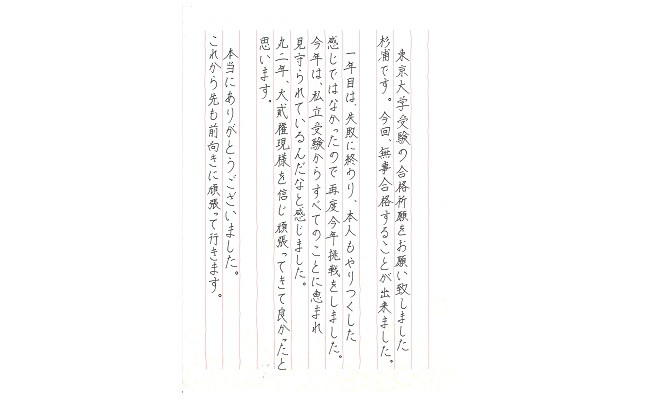 東京大学受験の合格祈願をお願い致しました
杉浦です。今回、無事合格することが出来ました。
一年目は、失敗に終わり、本人もやりつくした
感じではなかったので再度今年挑戦をしました。
今年は、私立受験からすべてのことに恵まれ
見守られているんだなと感じました。
丸二年、大貳権現様を信じ頑張ってきて良かったと
思います。
本当にありがとうございました。
これから先も前向きに頑張って行きます。